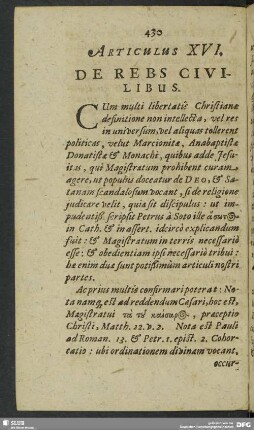 430
ARTICULUS XVI.
DE REBS CIVI-
LIBUS.
CUm multi libertatis Christianæ
definitione non intellecta, vel res
in universum, vel aliquas tollerent
politicas, velut Marcionitæ, Anabaptistæ
Donatistæ & Monachi, quibus adde Jesu-
itas, qui Magistratum prohibent curam
agere, ut populus doceatur de DEO, & Sa-
tanam scandalosum vocant, si de religione
judicare velit, quia sit discipulus: ut im-
pudentiss. scripsit Petrus à Soto ille
in Cath. & in assert. idcircò explicandum
fuit: & Magistratum in terris necessariò
esse: & obedientiam ipsi necessariò tribui:
hæ enim duæ sunt potissimùm articuli nostri
partes.
Ac prius multis confirmari poterat: No
ta namq́, est ad reddendum Cæsari, hoc est,
Magistratui τὰ τȣ̃ καίσαρ, præceptio
Christi, Matth. 22. v. 2. Nota est Pauli
ad Roman. 13. & Petr. 1. epist. 2. Cohor-
tatio: ubi ordinationem divinam vocant,
occur-
SLUB